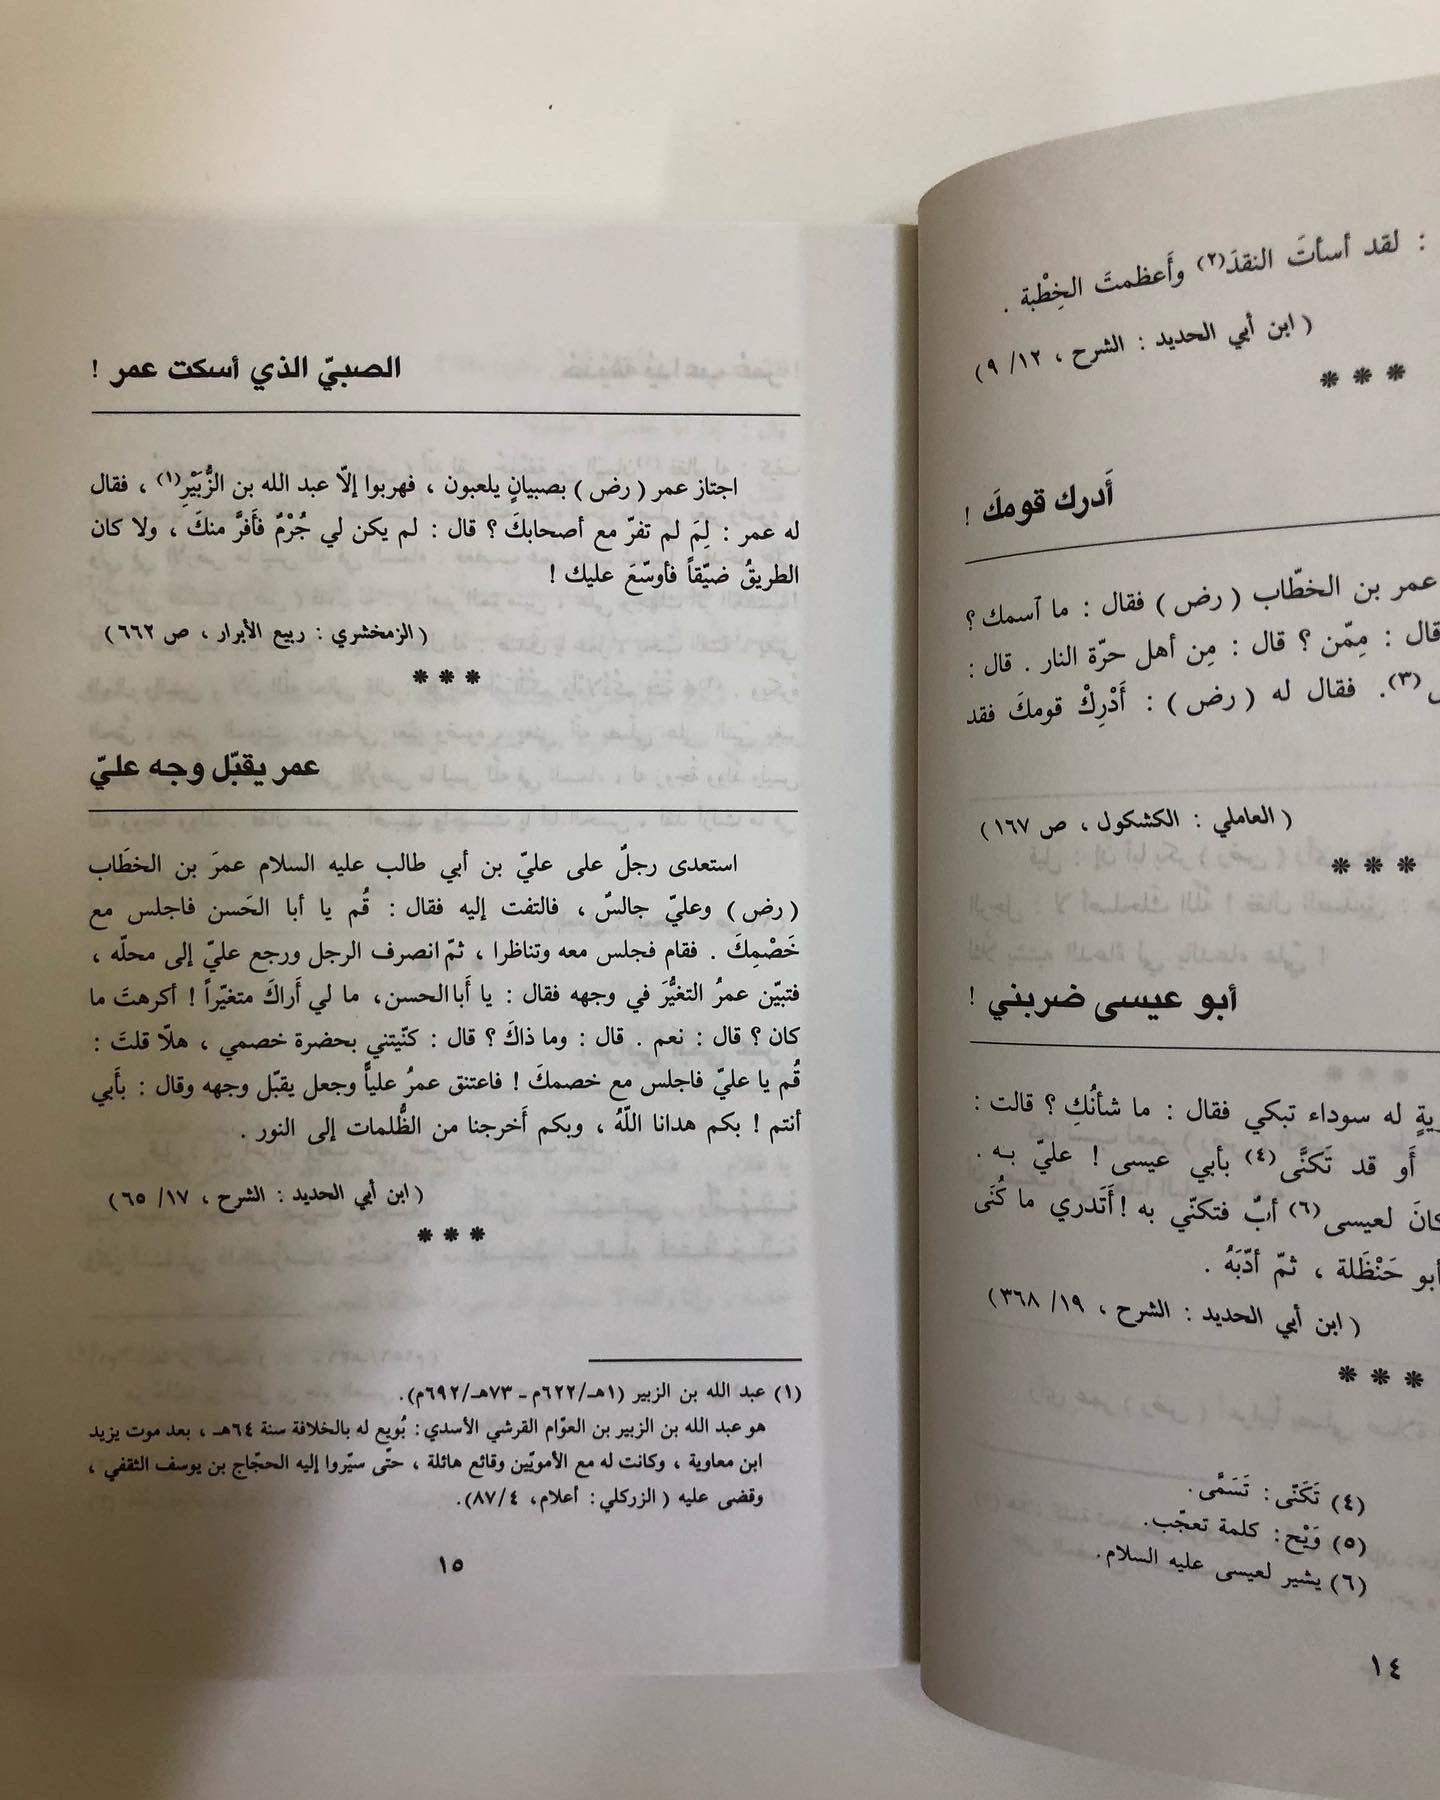 : لقد أسأتَ النقدَ(٢) وأَعظمتَ الخِطْبة .
( ابن أبي الحديد : الشرح ، ١٢/ ٩)
* * *
أَدرك قومكَ !
عمر بن الخطّاب ( رض ) فقال : ما ٱسمك ؟
قال : مِمّن ؟ قال : مِن أهل حرّة النار . قال :
(٣). فقال له ( رض ) : أَدْرِكْ قومكَ فقد
( العاملي : الكشكول ، ص ١٦٧)
* * *
أبو عيسى ضربني !
له سوداء تبكي فقال : ما شأنُكِ ؟ قالت :
أَو قد تَكنَّى(٤) بأبي عيسى ! عليّ به .
لعيسى(٦) أبٌ فتكنّي به ! أَتَدري ما كُنَى
أبو حَنْظَلة ، ثمّ أدّبَهُ .
( ابن أبي الحديد : الشرح ، ١٩/ ٣٦٨)
* * *
(٤) تَكَنّى : تَسَمَّى.
(٥) وَيْح : كلمة تعجّب.
(٦) يشير لعيسى عليه السلام.
١٤
الصبيّ الذي أسكت عمر !
اجتاز عمر ( رض ) بصبيانٍ يلعبون ، فهربوا إلاّ عبد الله بن الزُّبَيْرِ(١) ، فقال
له عمر : لِمَ لم تفرّ مع أصحابكَ ؟ قال : لم يكن لي جُرْمٌ فأَفرَّ منكَ ، ولا كان
الطريقُ ضيّقاً فأوسّعَ عليك !
( الزمخشري : ربيع الأبرار ، ص ٦٦٢)
* * *
عمر يقبّل وجه عليّ
استعدى رجلٌ على عليّ بن أبي طالب عليه السلام عمرَ بن الخطَاب
( رض ) وعليّ جالسٌ ، فالتفت إليه فقال : قُم يا أبا الحَسن فاجلس مع
خَصْمِكَ . فقام فجلس معه وتناظرا ، ثمّ انصرف الرجل ورجع عليّ إلى محلّه ،
فتبيّن عمرُ التغيُّرَ في وجهه فقال : يا أَبا الحسن، ما لي أَراكَ متغيّراً ! أكرهتَ ما
كان ؟ قال : نعم . قال : وما ذاكَ ؟ قال : كنّيتني بحضرة خصمي ، هلاّ قلتَ :
قُم يا عليّ فاجلس مع خصمكَ ! فاعتنق عمرُ علياً وجعل يقبّل وجهه وقال : بأَبي
أنتم ! بكم هدانا اللّهُ ، وبكم أَخرجنا من الظُّلمات إلى النور .
( ابن أبي الحديد : الشرح ، ١٧/ ٦٥)
* * *
(١) عبد الله بن الزبير (١هـ/٦٢٢م - ٧٣هـ/٦٩٢م).
هو عبد الله بن الزبير بن العوّام القرشي الأسدي : بُويع له بالخلافة سنة ٦٤هـ ، بعد موت يزيد
ابن معاوية ، وكانت له مع الأمويّين وقائع هائلة ، حتّى سيّروا إليه الحجّاج بن يوسف الثقفي ،
وقضى عليه ( الزركلي : أعلام، ٨٧/٤).
١٥